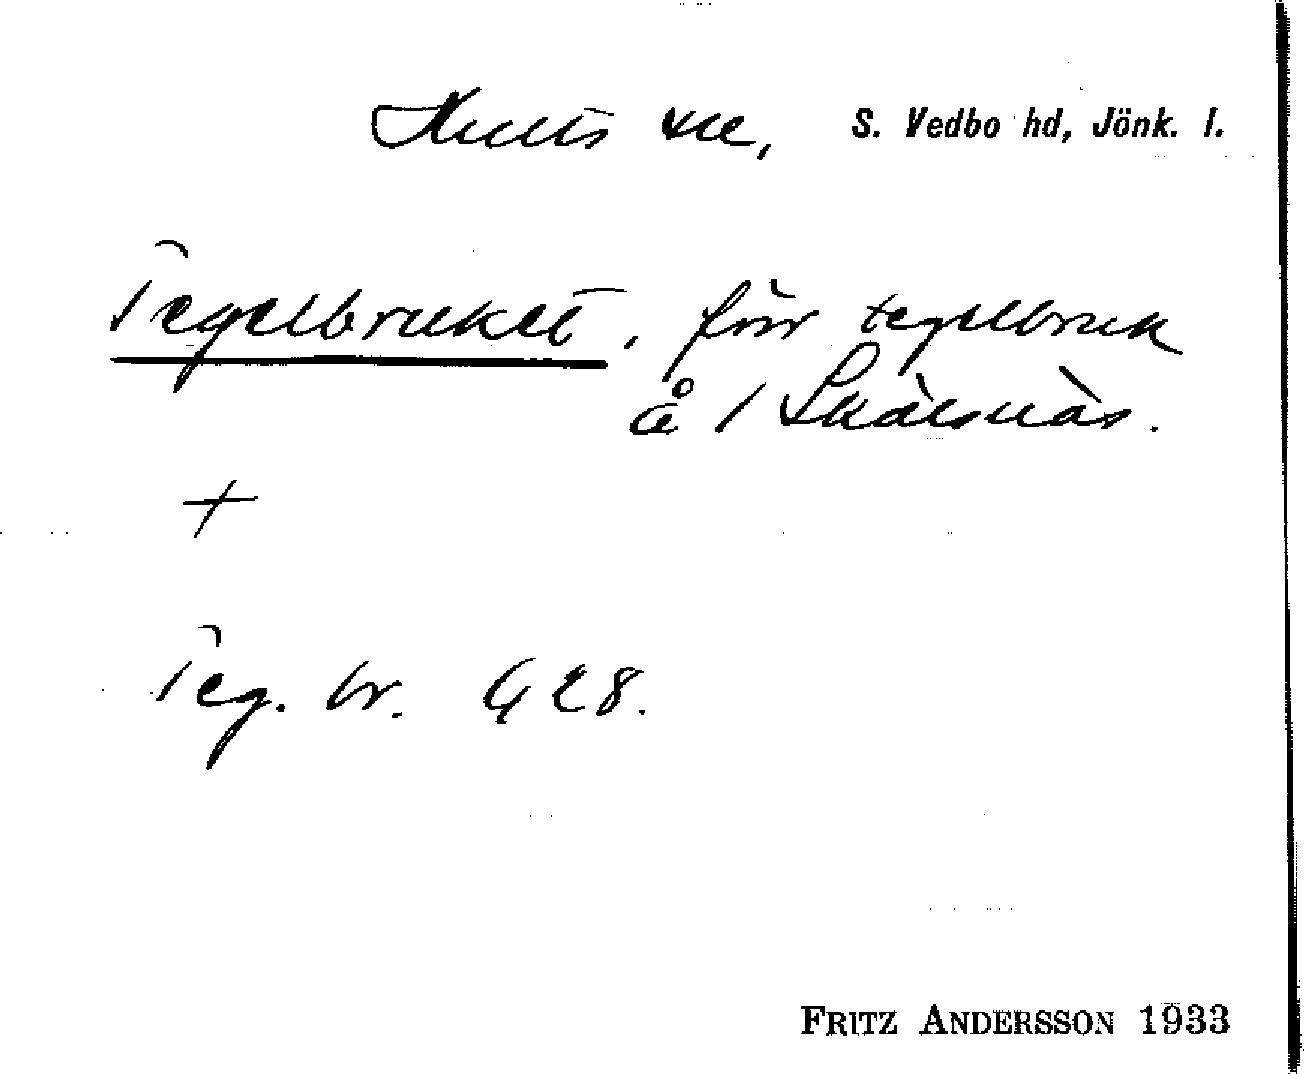 Hults sn, S. Vedbo hd, Jönk. l.
Tegelbruket, förr tegelbruk
å / Skälsnäs.
+
Teg. br. G 28.
FRITZ ANDERSSON 1933